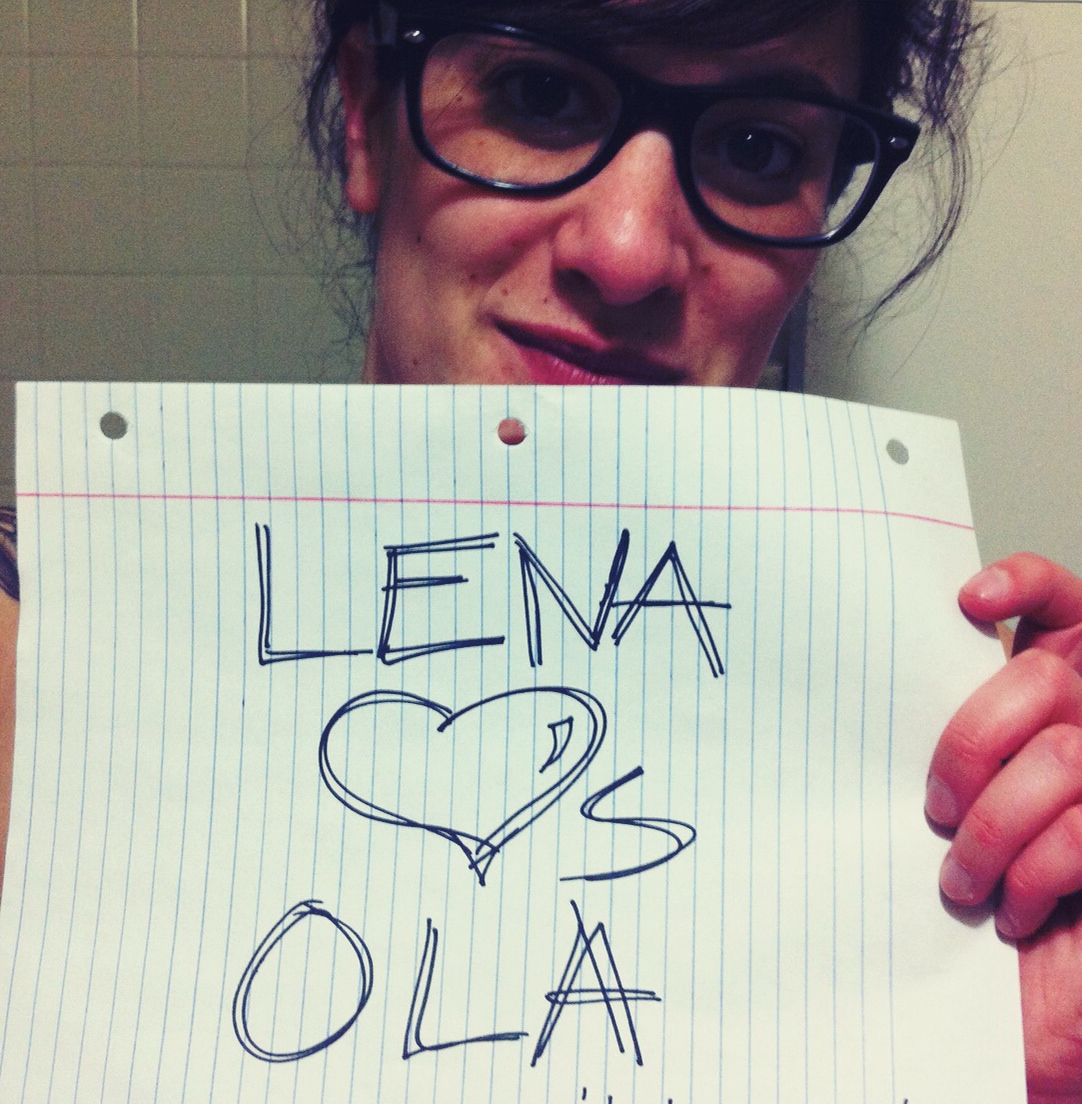 LENA
♥S
OLA